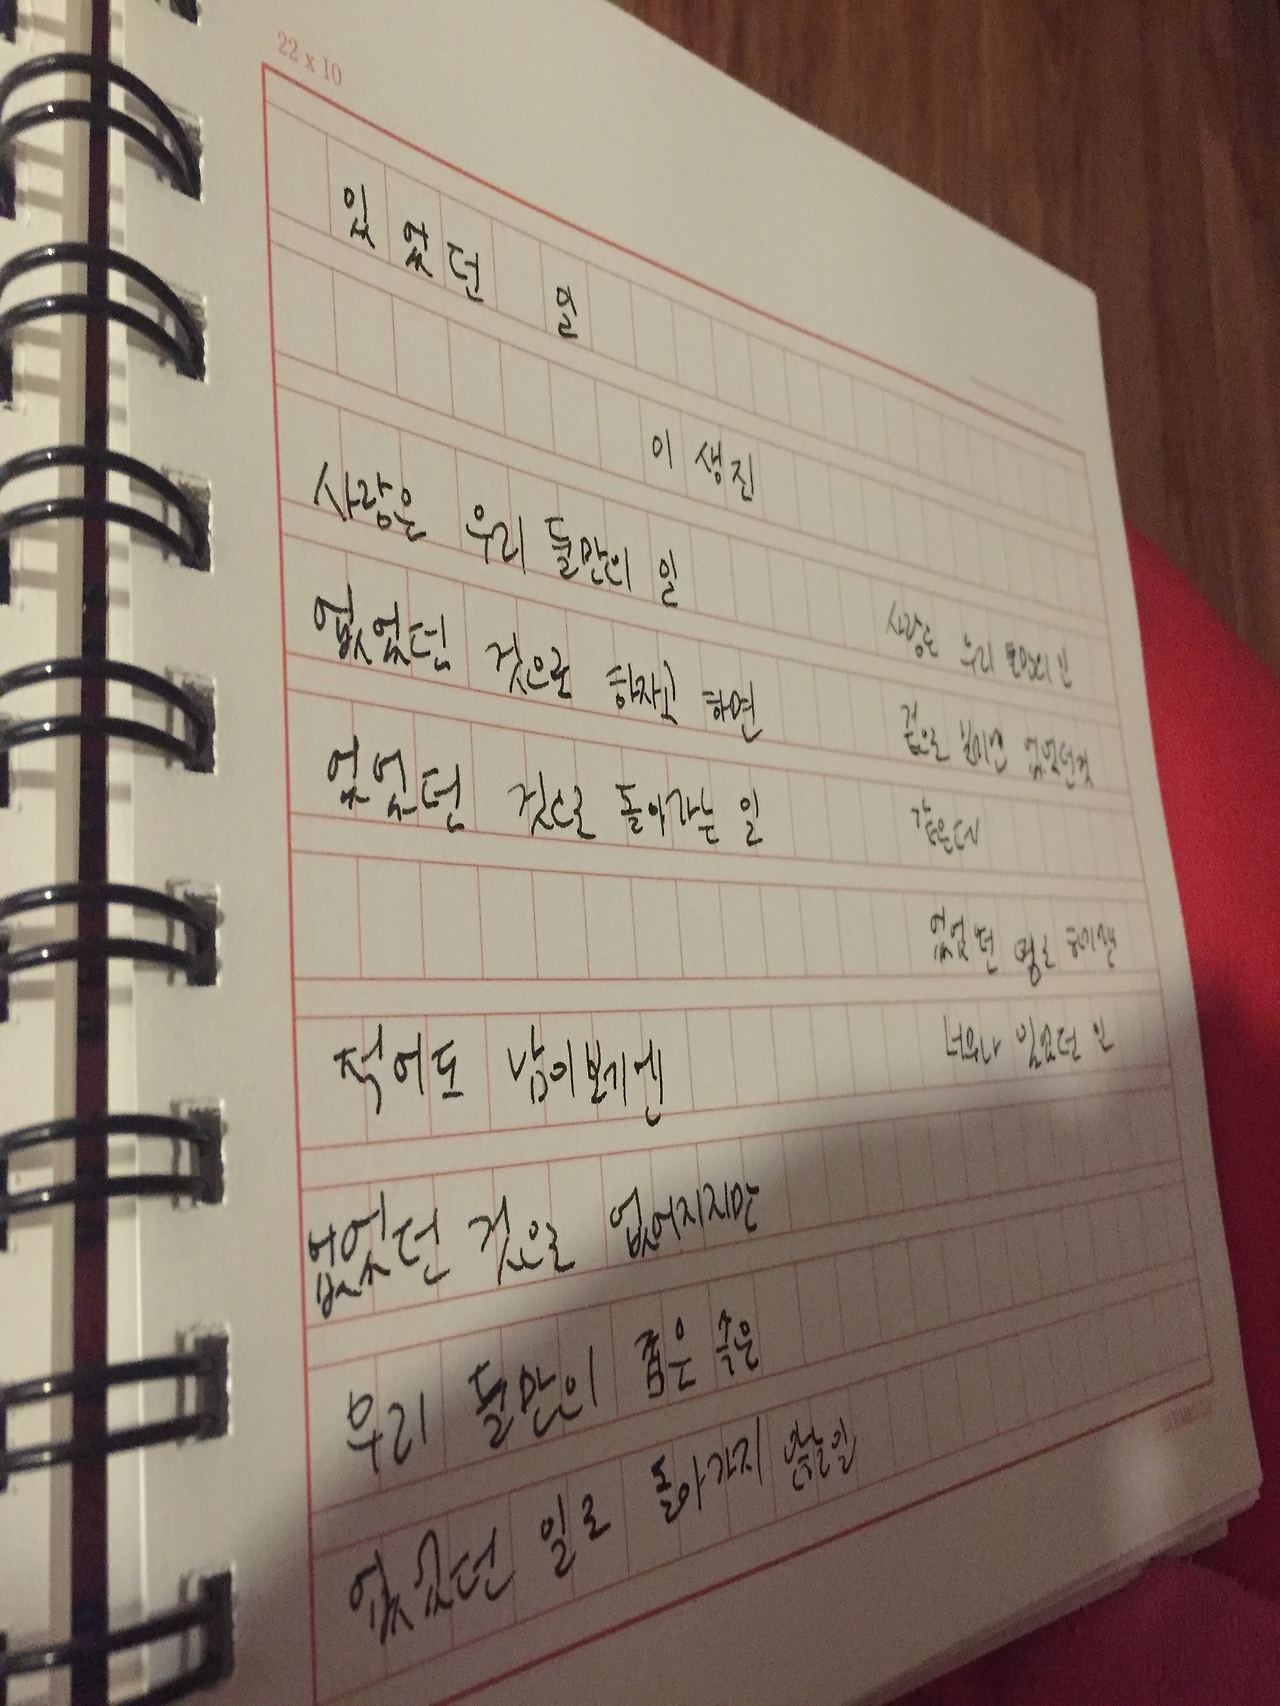 22 x 10
있었던 일
이 생진
사랑은 우리 둘만의 일
없었던 것으로 하자고 하면
없었던 것으로 돌아가는 일
적어도 남이보기엔
없었던 것으로 없어지지만
우리 둘만의 좁은 속은
없었던 일로 돌아가지 않는일
사랑은 우리 둘만의 일
겉으로 보이면 없었던것
같은데
없었던 일로 하기엔
너와나 있었던 일